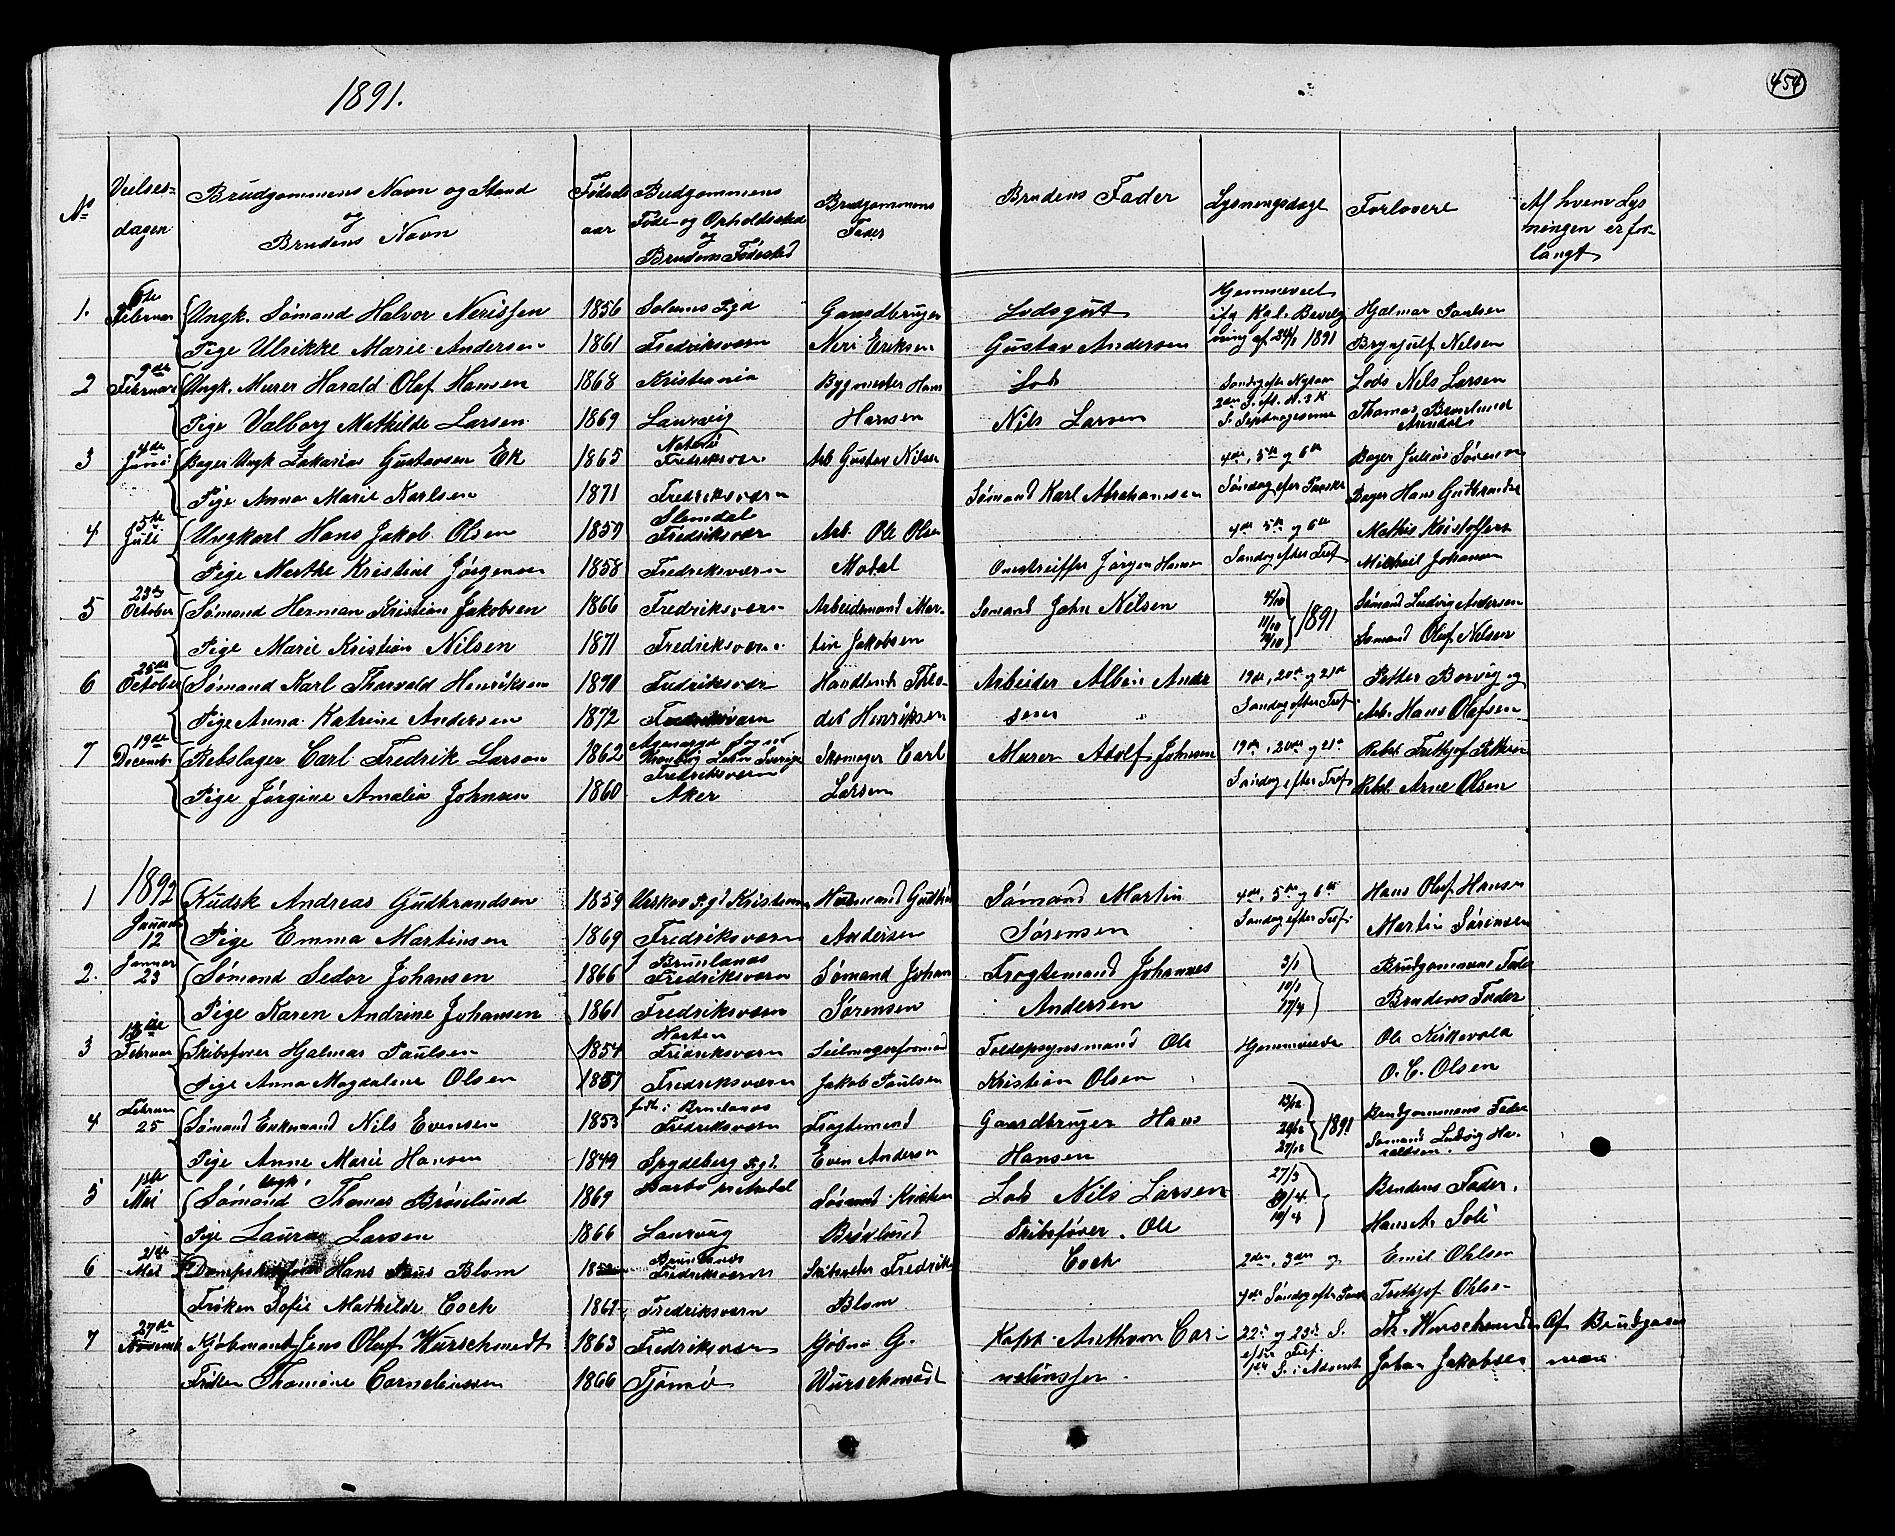 1891.
454
No
Vielses-
dagen
Brudgommens Navn og Stand
og
Brudens Navn
Fødsels
aar
Budgommens
Føde- og Opholdssted
og
Brudens Fødested
Brudgommens
Fader
Brudens Fader
Lysningsdage
Forlovere
Af hvem Lys
ningen er for-
langt
1. 6te Februar Ungk. Sømand Halvor Nerissen 1856 Solums Pgd Gaardbruger Lodsgut Hjemmeviet ifg Kgl. Bevilg Hjalmar Paulsen
Pige Ulrikke Marie Andersen 1861 Fredriksværn Neri Eriksen Gustav Andersen ning af 24/1 1891 Brynjulf Nilsen
2 9de Februar Ungk. Murer Harald Olaf Hansen 1868 Kristiania Bygmester Hans Lods Søndag efter Nytaar Lods Nels Larsen
Pige Valborg Mathilde Larsen 1869 Laurvig Hansen Nils Larsen S. Septuagesima Thomas Brøslund Arendal
3 4de Juni Bager Ungk Zakarias Gustavsen Ek 1865 Fredriksværn Arb. Gustav Nilsen 4de, 5te og 6te Bager Julius Sørensen
Pige Anna Marie Karlsen 1871 Fredriksværn Sømand Karl Abrahamsen Søndag efter Paaske Bager Hans Gudbrandse
4 5te Juli Ungkarl Hans Jakob Olsen 1859 Slemdal Fredriksvær Arb. Ole Olsen 4de 5te og 6te Mathis Kristoffersen
Pige Marthe Kristine Jørgensen 1858 Fredriksværn Modal Jørgen Hansen Søndag efter Tref Mikkael Johansen
5 23de October Sømand Herman Kristian Jakobsen 1866 Fredriksværn Arbeidsmand Mar- Sømand John Nilsen 4/10 11/10 1891 Sømand Ludvig Andersen
Pige Marie Kristian Nilsen 1871 Fredriksværn tin Jakobsen 18/10 Sømand Oluf Nilsen
6 25de October Sømand Karl Thorvald Henriksen 1870 Fredriksvær Handlende Theo- Arbeider Albin Ander 19de, 20de og 21de Petter Borvig og
Pige Anna Katrine Andersen 1872 Fredriksværn dor Henriksen sen Søndag efter Tref. Arb. Hans Olafsen
7 19de Decemb. Rebslager Carl Fredrik Larson 1862 Sogn Kronobrg Sverige Fredriksværn Skomager Carl Murer Adolf Johnsen 19de, 20de og 21de Rebsl. Frithjof Pettersen
Pige Jørgine Amalia Johnsen 1860 Aker Larsen Søndag efter Tref. Rebsl. Arne Olsen
1892
1 Januar 12 Kudsk Andreas Gudbrandsen 1859 Urskov Pgd Kristiania Husmand Gudbr Sømand Martin 4de, 5te og 6te Hans Oluf Hansen
Pige Emma Martinsen 1869 Fredriksværn Andersen Sørensen Søndag efter Tref. Martin Sørensen
2. Januar 23 Sømand Sedor Johansen 1866 f Brunlanæs Fredriksværn Sømand Johan Fragtemand Johannes 3/1 10/1 Brudgommens Fader
Pige Karen Andrine Johansen 1861 Fredriksværn Sørensen Andersen 17/1 Brudens Fader
3 Februar Skibsfører Hjalmar Paulsen 1854 Horten Fredriksværn Seilmagerformand Toldopsynsmand Ole Hjemmeviede Ole Kirkevold
Pige Anna Magdalene Olsen 1857 Fredriksværn Jakob Paulsen Kristian Olsen O. C. Olsen
4 Februar 25 Sømand Enkemand Nils Evensen 1853 født i Brunlanæs Fredriksværn Fragtemand Gaardbruger Hans 13/12 20/12 1891 Brudgommens Fader
Pige Anne Marie Hansen 1849 Spydeberg Pgd. Even Andersen Hansen 27/12 Sømand Ludvig Ha- raldsen.
5 Mai Ungk Sømand Thomas Brøslund 1869 Barbo pr Arendal Sømand Kristen Lods Nils Larsen 27/3 Brudens Fader.
Pige Laura Larsen 1866 Laurvig Brøslund Skibsfører Ole 10/4 Hans A. Soli
6 21de Mai Dampskibsfører Hans Paus Blom Brunlanæs Fredriksværn Skibsreder Fredrik Coch 2den, 3die og Emil Ohlsen
Frøken Sofie Mathilde Coch 1865 Fredriksværn Blom 4de Søndag efter Paaske Frithjof Ohlsen
7 27de Novemb. Kjøbmand Jens Oluf Wurschmidt 1863 Fredriksværn Kjøbm G. Kapt. Anthon Cor- 22de og 23de S. e/der Tref. Th. Wurschmidt Af Brudgom
Frøken Thomine Corneliussen 1866 Tjømø Wurschmidt neliussen. 1ste S. i Advent Johan Jakobsen men